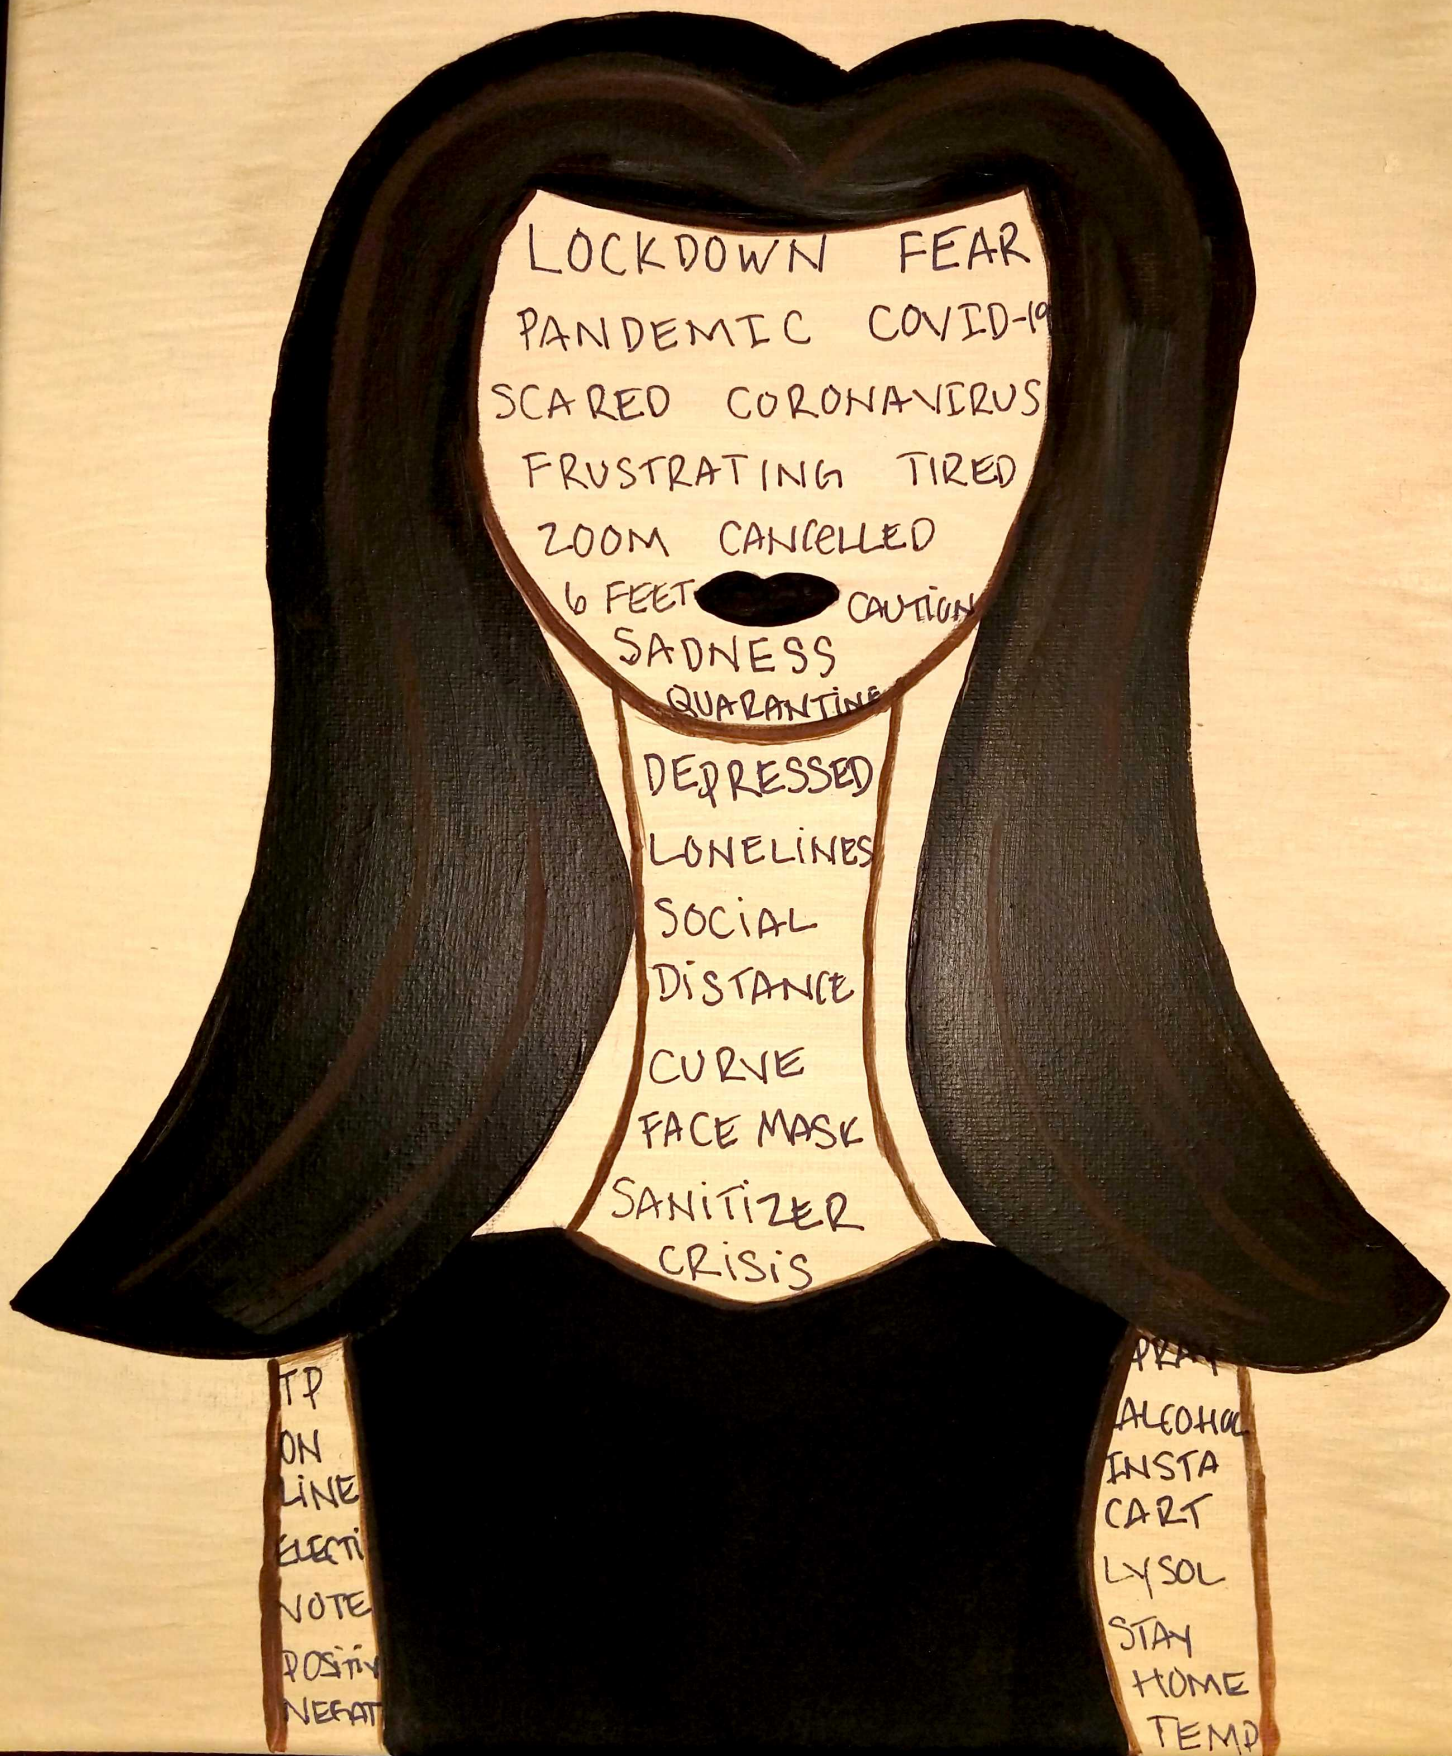 LOCKDOWN FEAR
PANDEMIC COVID-19
SCARED CORONAVIRUS
FRUSTRATING TIRED
ZOOM CANCELLED
6 FEET CAUTION
SADNESS
QUARANTINE
DEPRESSED
LONELINES
SOCIAL
DISTANCE
CURVE
FACE MASK
SANITIZER
CRISIS
TP
ON
LINE
ELECTI
VOTE
POSITIV
NEGAT
PRAY
ALCOHOL
INSTA
CART
LYSOL
STAY
HOME
TEMP